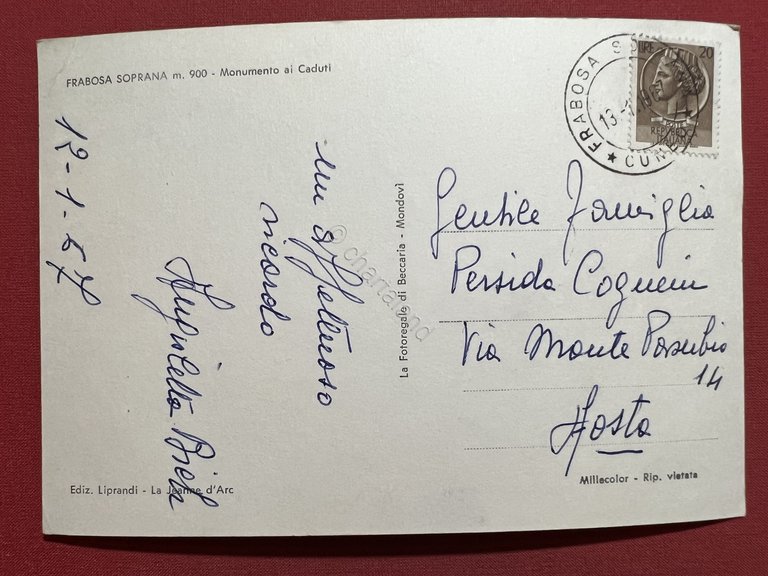 FRABOSA SOPRANA m. 900 - Monumento ai Caduti
12-1-67
un affettuoso
ricordo
Ediz. Liprandi - La Jeanne d'Arc
La Fotoregale di Beccaria - Mondovì
© chartaland
FRABOSA S
CUN
LIRE 20
REPUBBLICA
ITALIANA
Gentile Famiglia
Persida
Via Monte Pasubio
14
Aosta
Millecolor - Rip. vietata